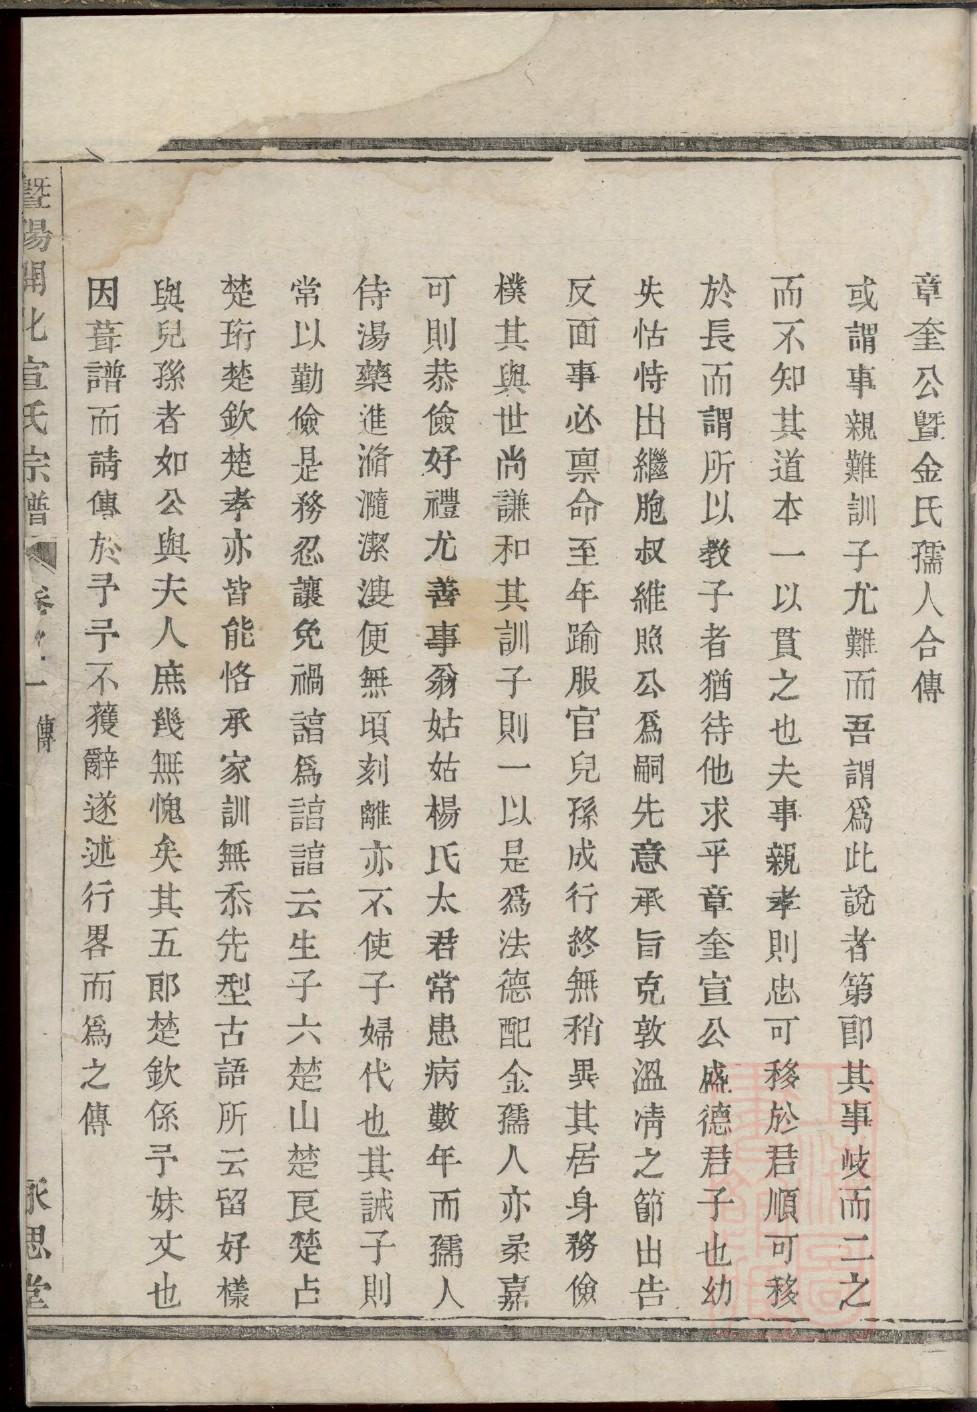 章奎公暨金氏孺人合傳
或謂事親難訓子尤難而吾謂爲此說者第卽其事岐而二之
而不知其道本一以貫之也夫事親孝則忠可移於君順可移
於長而謂所以教子者猶待他求乎章奎宣公盛德君子也幼
失怙恃出繼胞叔維照公爲嗣先意承旨克敦溫凊之節出告
反面事必禀命至年踰服官兒孫成行終無稍異其居身務儉
樸其與世尚謙和其訓子則一以是爲法德配金孺人亦柔嘉
可則恭儉好禮尤善事翁姑姑楊氏太君常患病數年而孺人
侍湯藥進滫瀡潔溲便無頃刻離亦不使子婦代也其誡子則
常以勤儉是務忍讓免禍諄爲諄諄云生子六楚山楚艮楚占
楚珩楚欽楚孝亦皆能恪承家訓無忝先型古語所云留好樣
與兒孫者如公與夫人庶幾無愧矣其五郎楚欽係予妹丈也
因葺譜而請傳於予予不獲辭遂述行畧而爲之傳
暨陽開化宣氏宗譜 卷之一 傳 承思堂